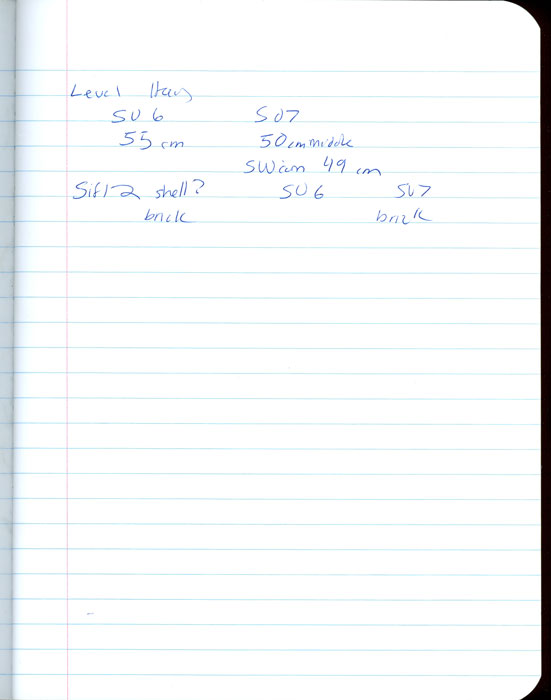 Level
SU 6 SU7
55 cm 50cm middle
SW 49 cm
Sift 2 shell? SU6 SU7
brick brick